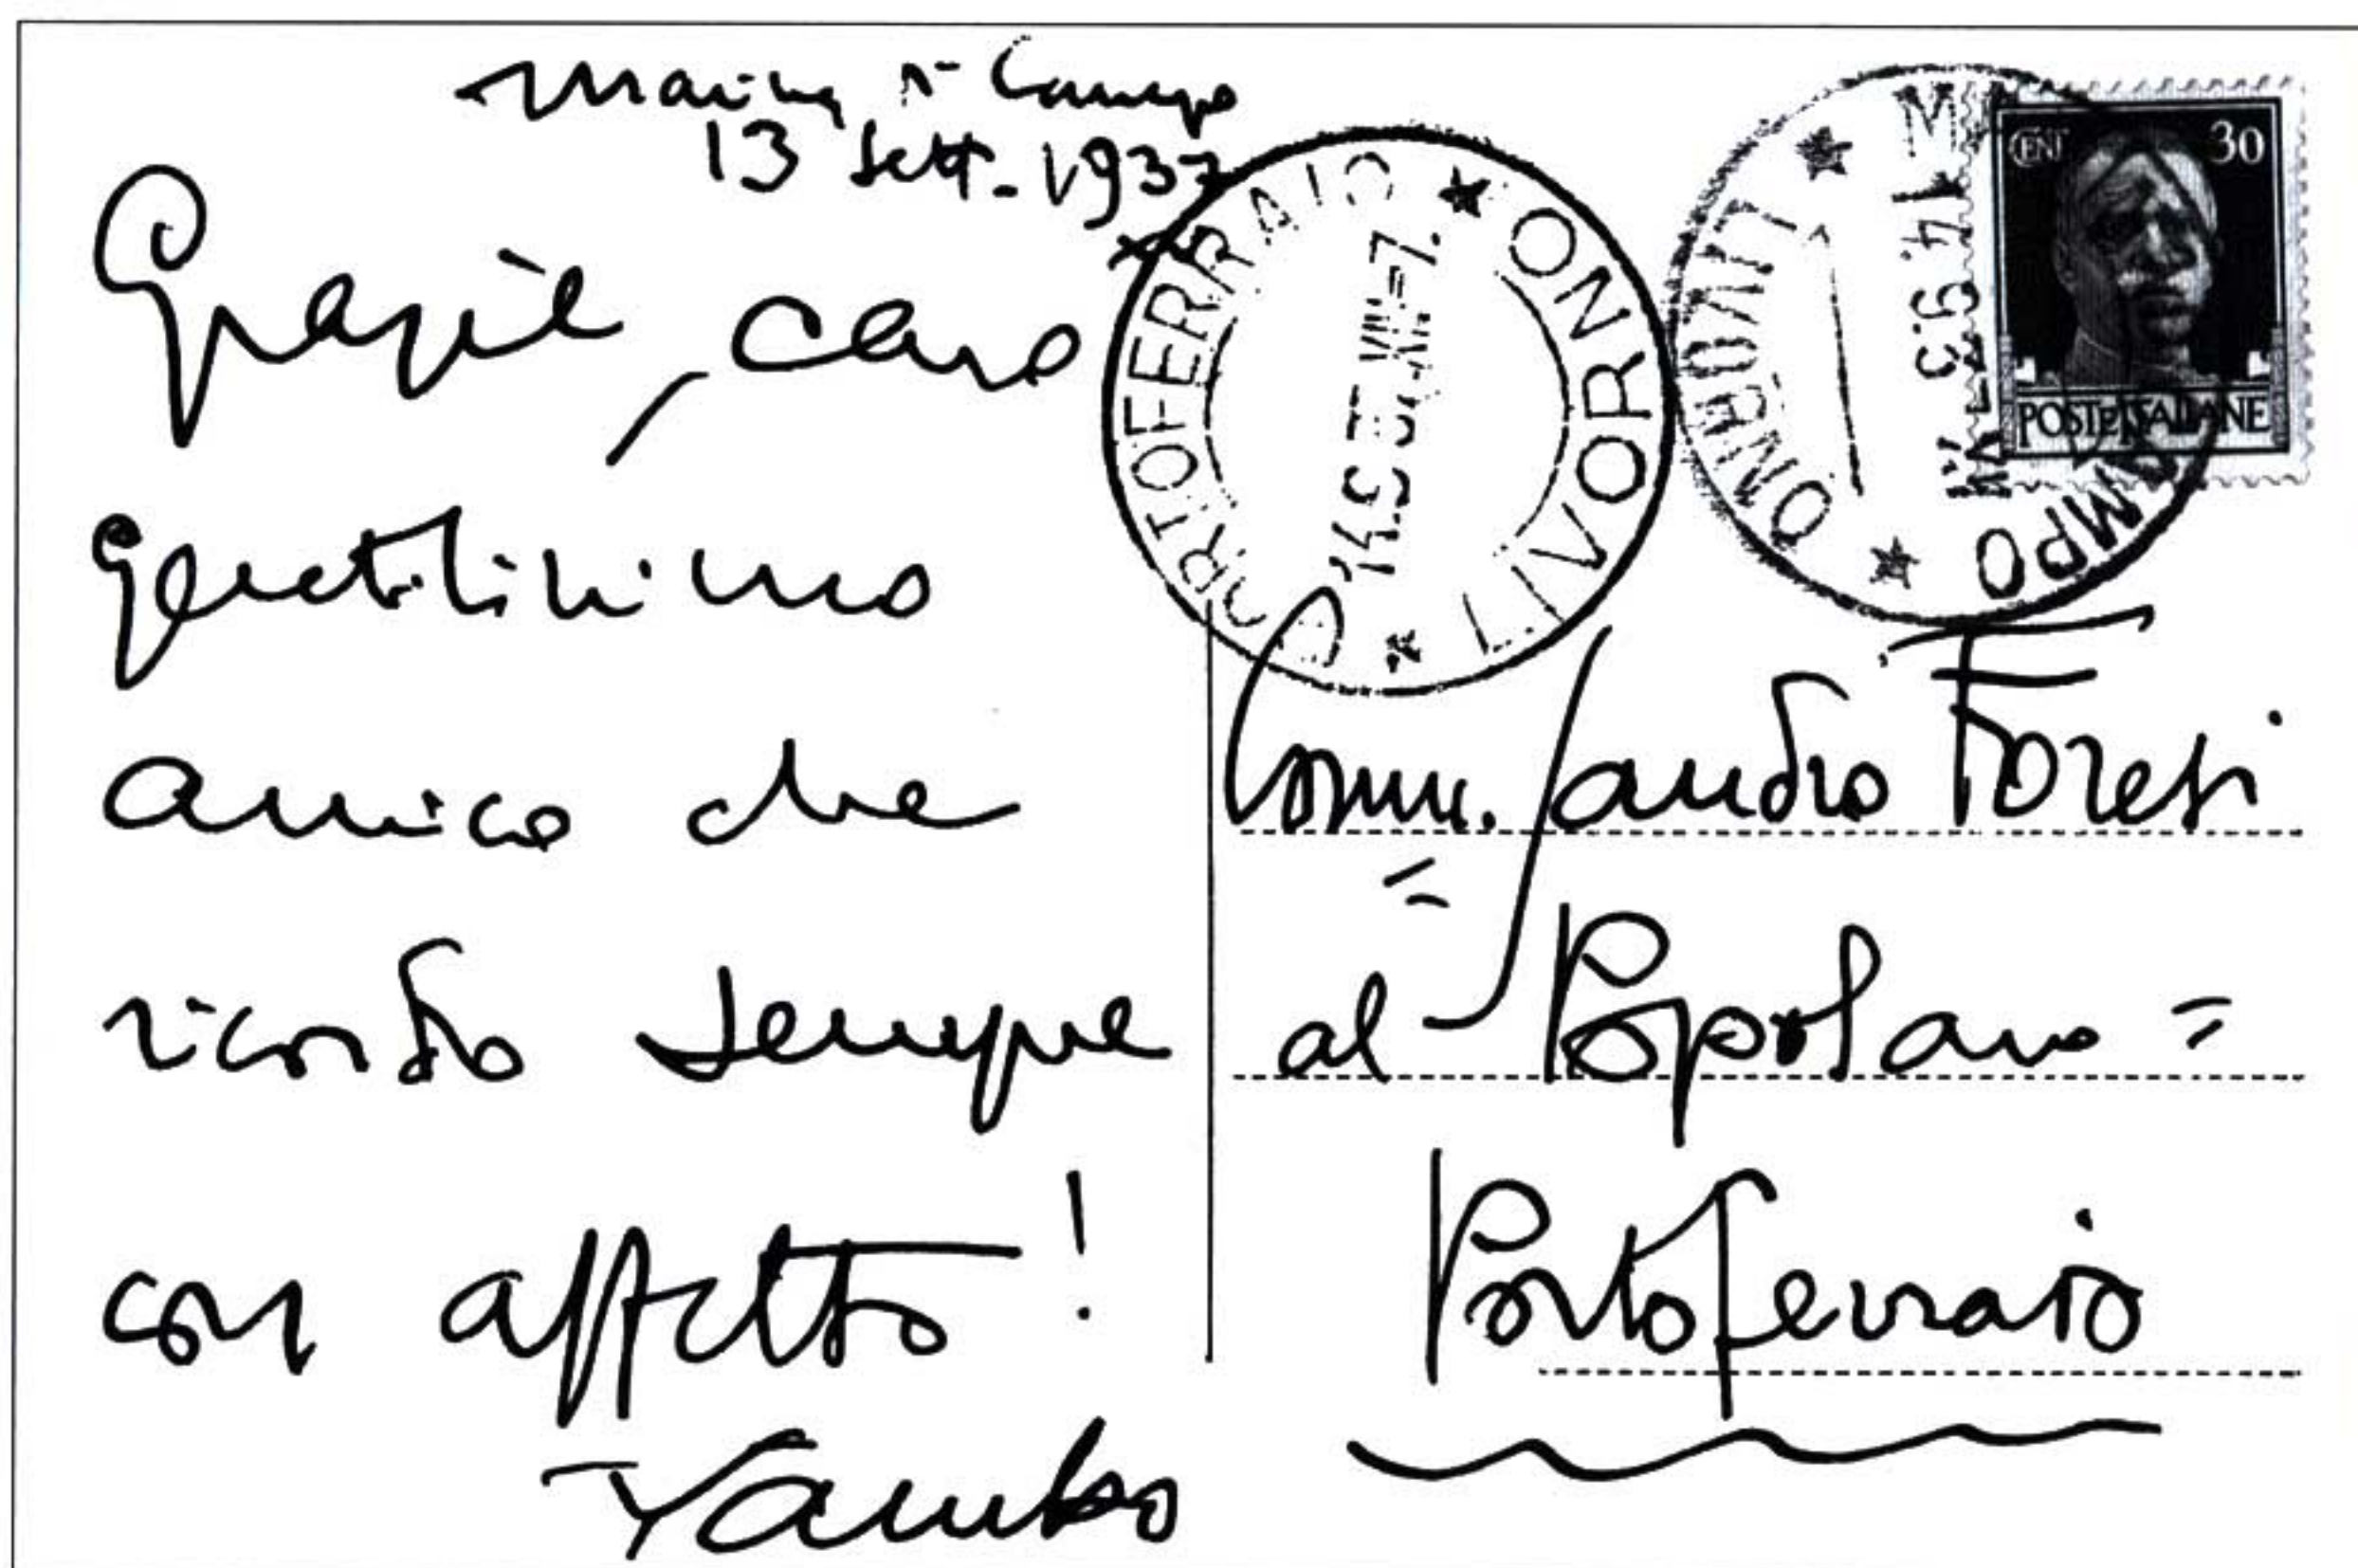 Marina di Campo
13 Sett. 1937
XV
Grazie, caro
gentilissimo
amico che
ricordo sempre
con affetto!
Yambo
PORTOFERRAIO
* LIVORNO *
14.9.37.XV
* LIVORNO *
14.9.37
CAMPO
CENT 30
POSTE ITALIANE
Comm. Sandro Foresi
= al Popolano =
Portoferraio